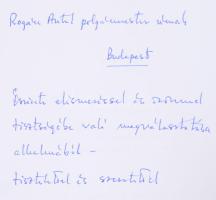 Rogán Antal polgármester úrnak
Budapest
Őszinte elismeréssel és örömmel
tisztségébe való megválasztása
alkalmából –
tisztelettel és szeretettel